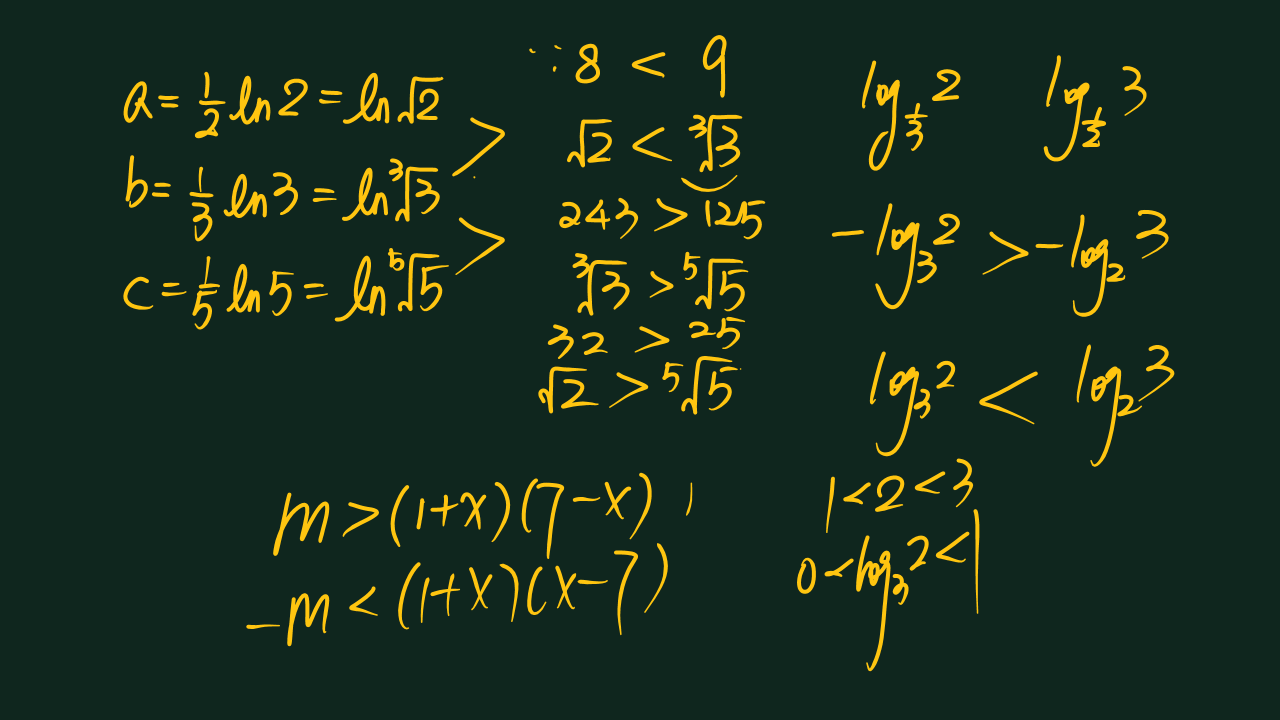 a = 1/2 ln 2 = ln √2 >
b = 1/3 ln 3 = ln ³√3 >
c = 1/5 ln 5 = ln ⁵√5
∵ 8 < 9
√2 < ³√3
243 > 125
³√3 > ⁵√5
32 > 25
√2 > ⁵√5
log_{1/3} 2 log_{1/2} 3
-log_3 2 > -log_2 3
log_3 2 < log_2 3
m > (1+x)(7-x)
-m < (1+x)(x-7)
1 < 2 < 3
0 < log_3 2 < 1